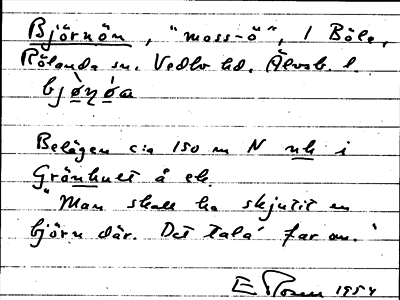 Björnön, "moss-ö", I Böle,
Rölanda sn. Vedbo hd. Älvsb. l.
bjö̀ṇöa
Belägen c:a 150 m N nh i
Grönhult å ek.
"Man skall ha skjutit en
björn där. Det tala' far om."
1954